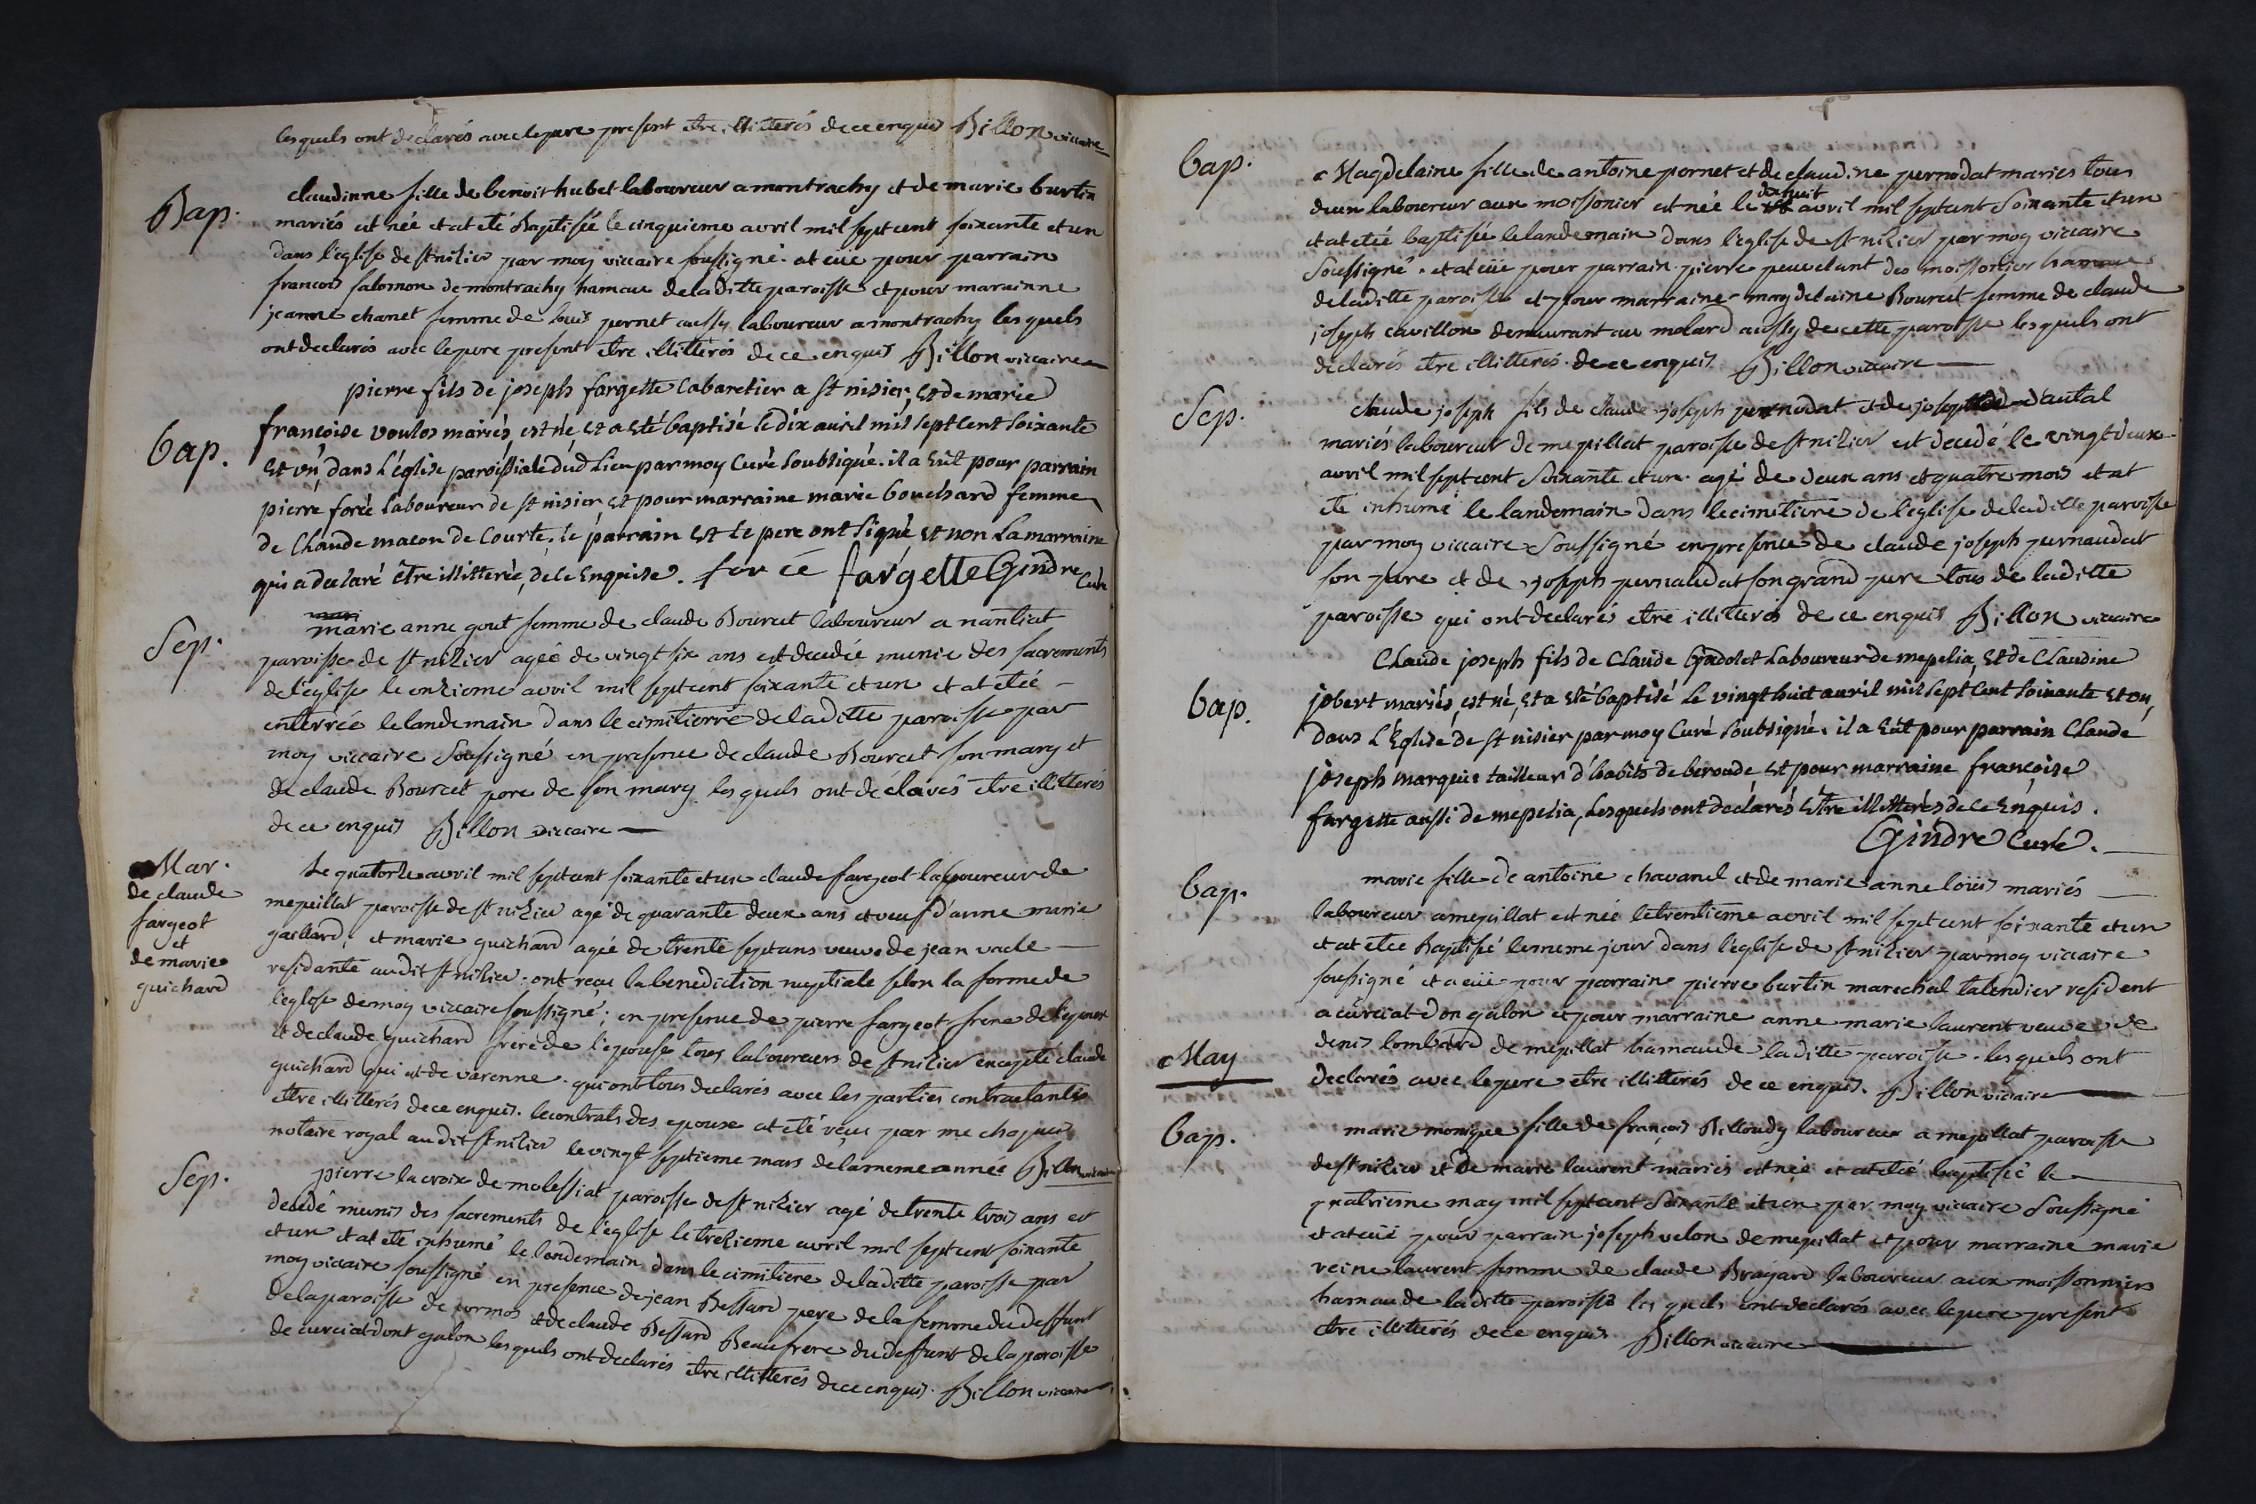 lesquels ont declarés avec le pere present etre illitterés de ce enquis Billon viccaire
Bap.
claudinne fille de benoit hubet laboureur a montrachy et de marie burtin
mariés est née et at eté Baptisée le cinquieme avril mil sept cent soixante et un
dans l'eglise de st nizier par moy viccaire soussigné. at eüe pour parrain
francois salomon de montrachy hameau de laditte paroisse et pour marainne
jeanne chanet femme de louis pernet aussy laboureur a montrachy lesquels
ont declarés avec le pere present etre illitterés de ce enquis Billon viccaire
Bap.
pierre fils de joseph fargette Cabaretier a st nisier, et de marie
francoise voulos mariés, est né et a eté baptisé le dix avril mil sept cent soixante
et un, dans l'église paroissiale dud lieu par moy Curé soubsigné. il a eüt pour parrain
pierre forée laboureur de st nisier et pour marraine marie bouchard femme
de Claude macon de Courte. le parrain et le pere ont signé et non la marraine
qui a declaré être illitterée, de ce Enquise. forée fargette Gindre Curé
Sep.
marie anne gout femme de claude Bourcet laboureur a nantiat
paroisse de st nizier agée de vingt six ans est decedée munie des sacrements
de l'eglise le onzieme avril mil sept cent soixante et un et at etée
enterrée le landemain dans le cimitierre de laditte paroisse par
moy viccaire soussigné en presence de claude Bourcet son mary et
de claude Bourcet pere de son mary lesquels ont déclarés etre illitterés
de ce enquis Billon viccaire
Mar.
de claude
fargeot
et
de marie
guichard
Le quatorze avril mil sept cent soixante et un claude fargeot laboureur de
mepillat paroisse de st nizier agé de quarante deux ans et veuf d'anne marie
gaillard, et marie guichard agée de trente sept ans veuve de jean vade
residante audit st nizier. ont reçu la benediction nuptiale selon la forme de
l'eglise de moy viccaire soussigné; en presence de pierre fargeot frere de l'epoux
et de claude guichard frere de l'epouse tous laboureurs de st nizier excepté claude
guichard qui est de varenne. qui ont tous declarés avec les parties contractantes
etre illitterés de ce enquis. le contrats des epoux at eté reçu par me chapuis
notaire royal audit st nizier le vingt septieme mars de la meme année Billon viccaire
Sep.
pierre la croix de molessiat paroisse de st nizier agé de trente trois ans est
decedé munis des sacrements de l'eglise le trezieme avril mil sept cent soixante
et un et at eté inhumé le landemain dans le cimitiere de laditte paroisse par
moy viccaire soussigné en presence de jean Bessard pere de la femme du deffunt
de la paroisse de cormos et de claude Bessard Beau frere du deffunt de la paroisse
de curciat dont galon lesquels ont declarés etre illitterés de ce enquis. Billon viccaire
bap.
Magdelaine fille de antoine pernet et de claudine pernodat mariés tous
deux laboureur aux moissonier est née le dix huit avril mil sept cent soixante et un
et at etée baptisée le landemain dans l'eglise de st nizier par moy viccaire
soussigné. et at eüe pour parrain pierre peuvelant des moissonier hameau
de laditte paroisse et pour marraine magdelaine Bourcet femme de claude
joseph cavillon demeurant au molard aussy de cette paroisse lesquels ont
declarés etre illitterés de ce enquis. Billon viccaire
Sep.
claude joseph fils de claude joseph pernodat et de josephte dautal
mariés laboureur de mepillat paroisse de st nizier est decedé le vingt deux
avril mil sept cent soixante et un. agé de deux ans et quatre mois et at
eté inhumé le landemain dans le cimitiere de l'eglise de laditte paroisse
par moy viccaire soussigné en presence de claude joseph pernaudat
son pere et de joseph pernaudat son grand pere tous de laditte
paroisse qui ont declarés etre illiterés de ce enquis Billon viccaire
bap.
Claude joseph fils de Claude Gadolet Laboureur de mepelia, et de Claudine
jobert mariés, est né, et a eté baptisé le vingt huit avril mil sept cent soixante et un,
dans l'Eglise de st nisier par moy Curé soubsigné. il a Eüt pour parrain Claude
joseph marquis tailleur d'habits de beroude et pour marraine françoise
fargette aussi de mepelia, lesquels ont declarés Etre illitterés de ce Enquis.
Gindre Curé.
bap.
marie fille de antoine chavanel et de marie anne loüis mariés
laboureur a mepillat est née le trentieme avril mil sept cent soixante et un
et at etée Baptisé le meme jour dans l'eglise de st nizier par moy viccaire
soussigné et a eüe pour parrain pierre burtin marechal talendier resident
a curciat dongalon et pour marraine anne marie laurent veuve de
denis lombard de mepillat hamaude laditte paroisse. lesquels ont
declarés avec le pere etre illitterés de ce enquis. Billon viccaire
May
bap.
marie monique fille de françois Billoudy laboureur a mepillat paroisse
de st nizier et de marie laurent mariés est née et at etée baptisée le
quatrieme may mil sept cent soixante et un par moy viccaire soussigné
et at eüe pour parrain joseph velon de mepillat et pour marraine marie
reine laurent femme de claude Brayard laboureur aux moissonniers
hamaude laditte paroisse lesquels ont declarés avec le pere present
etre illitterés de ce enquis. Billon viccaire